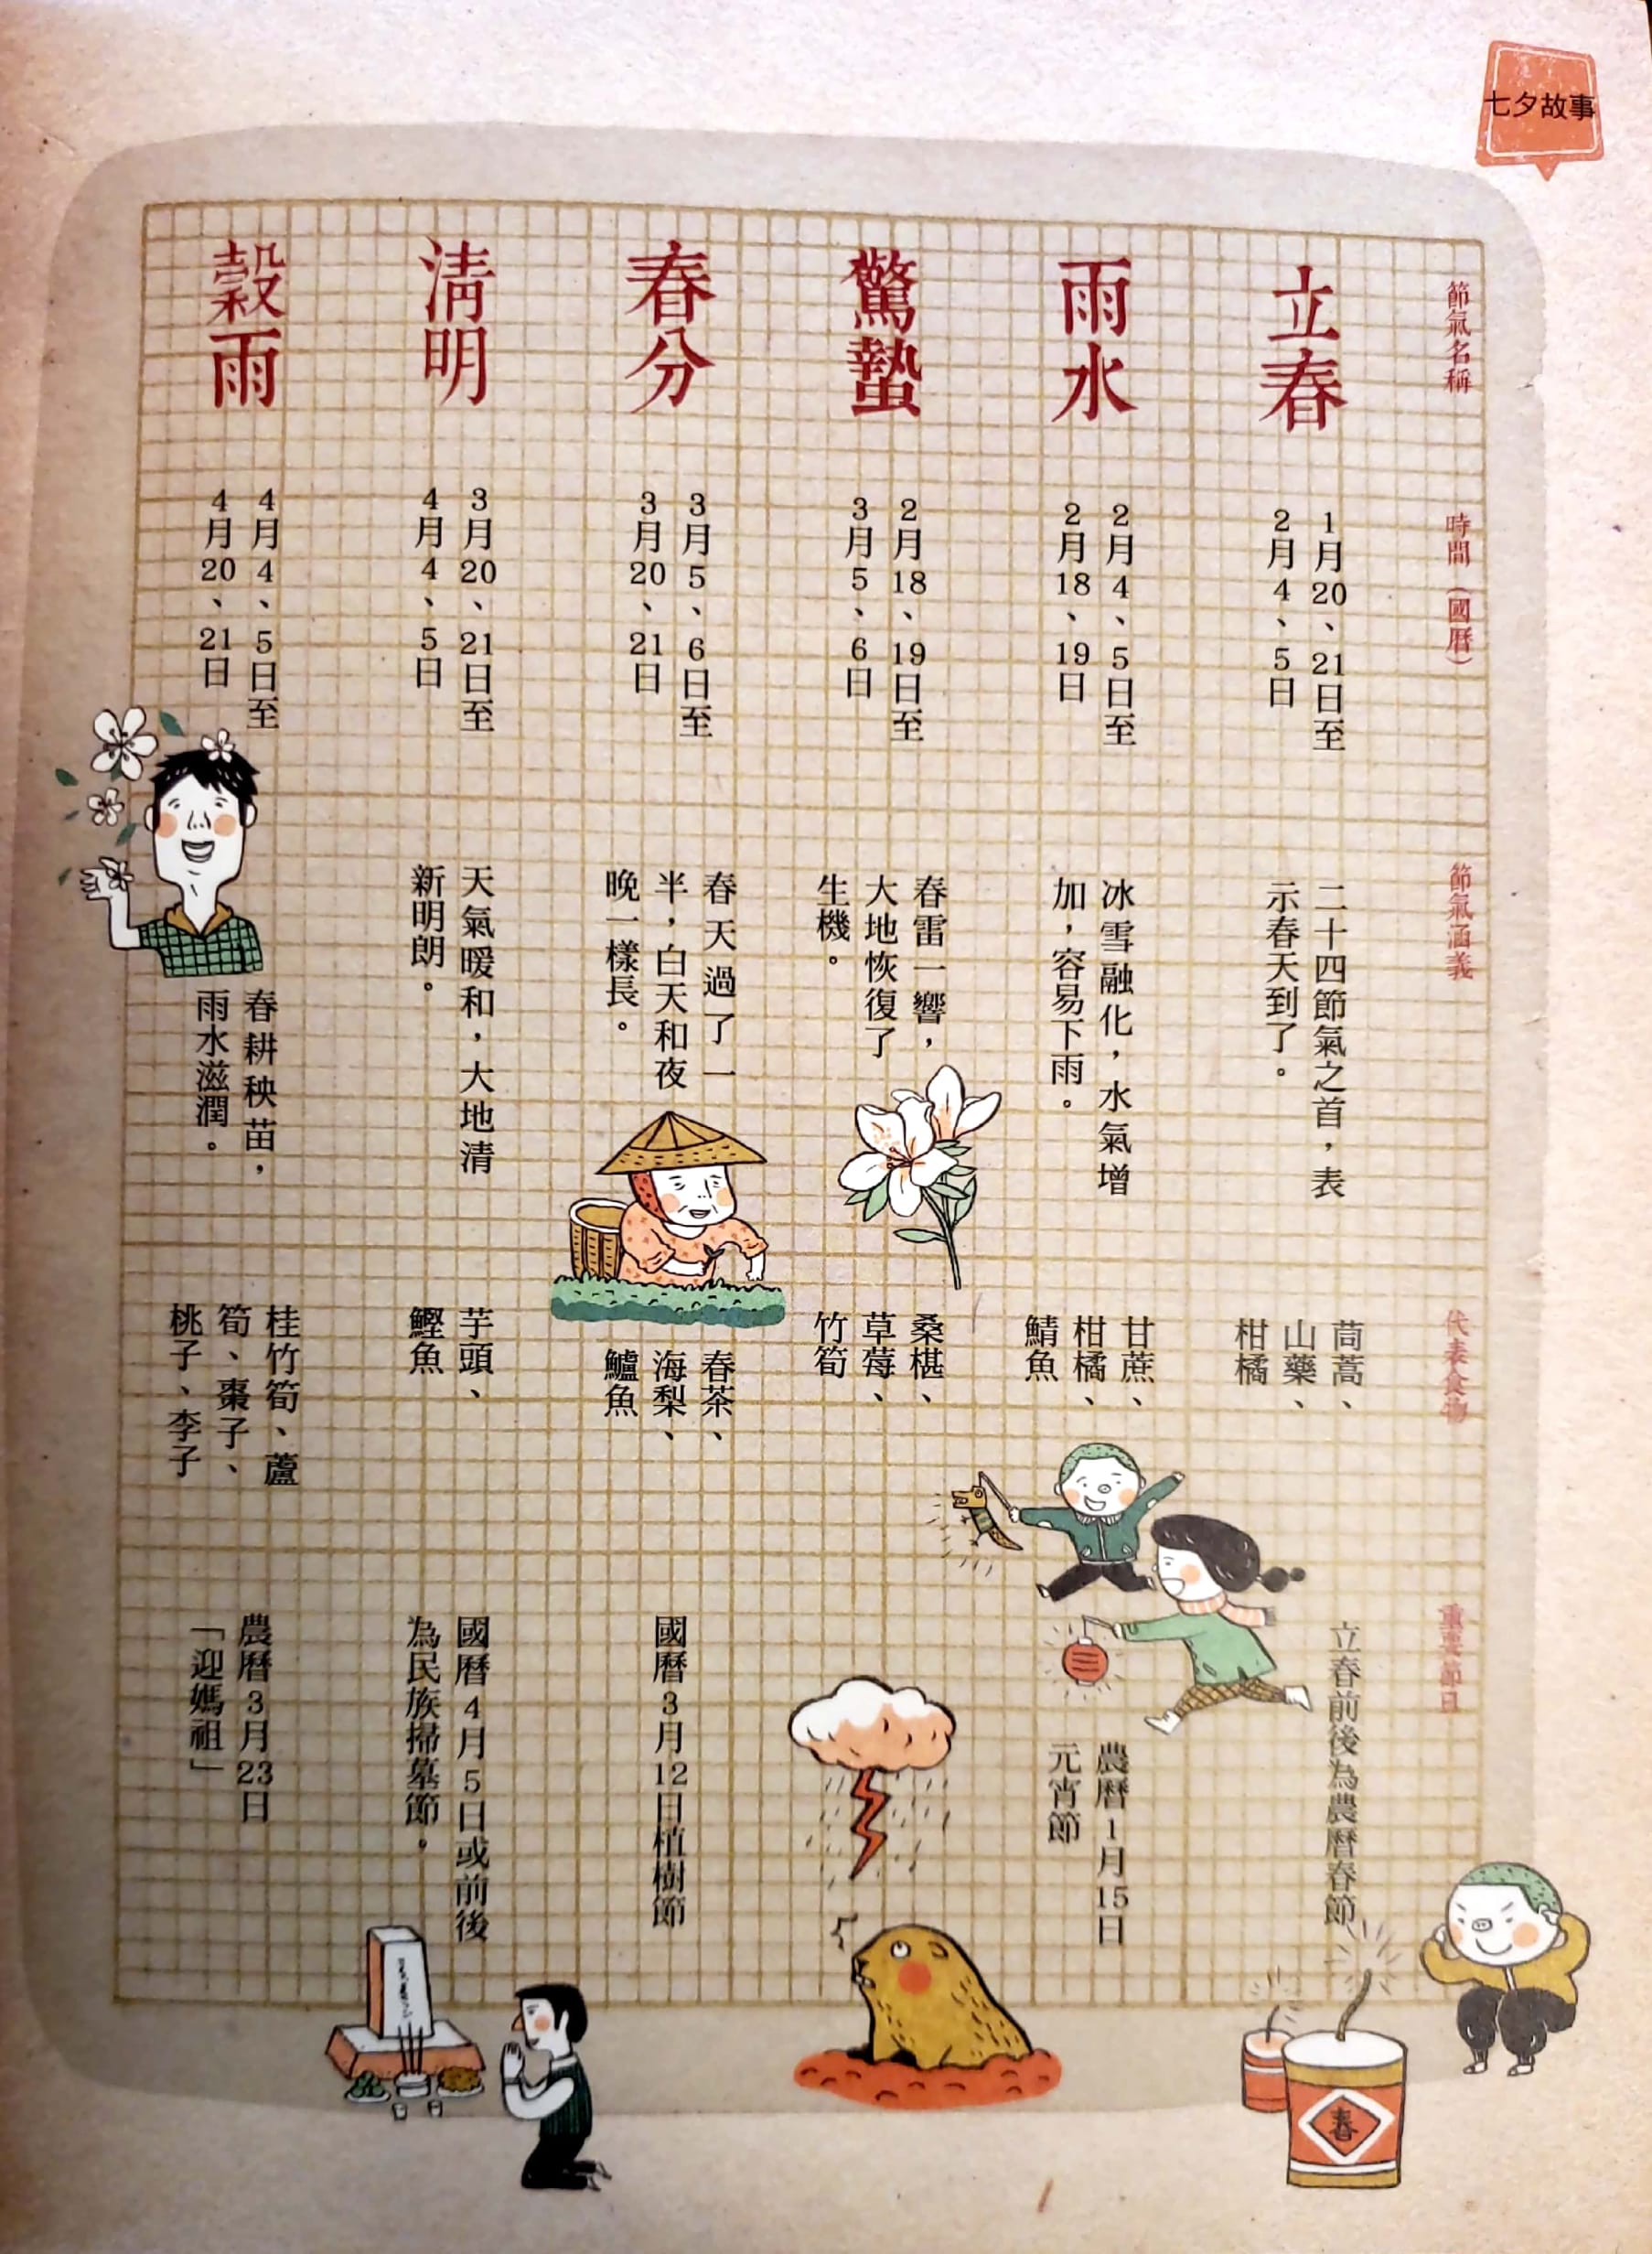 七夕故事
節氣名稱
時間（國曆）
節氣涵義
代表食物
重要節日
立春
1月20、21日至
2月4、5日
二十四節氣之首，表
示春天到了。
茼蒿、
山藥、
柑橘
立春前後為農曆春節
雨水
2月4、5日至
2月18、19日
冰雪融化，水氣增
加，容易下雨。
甘蔗、
柑橘、
鯖魚
農曆1月15日
元宵節
驚蟄
2月18、19日至
3月5、6日
春雷一響，
大地恢復了
生機。
桑椹、
草莓、
竹筍
春分
3月5、6日至
3月20、21日
春天過了一
半，白天和夜
晚一樣長。
春茶、
海梨、
鱸魚
國曆3月12日植樹節
清明
3月20、21日至
4月4、5日
天氣暖和，大地清
新明朗。
芋頭、
鰹魚
國曆4月5日或前後
為民族掃墓節。
穀雨
4月4、5日至
4月20、21日
春耕秧苗，
雨水滋潤。
桂竹筍、蘆
筍、棗子、
桃子、李子
農曆3月23日
「迎媽祖」
春